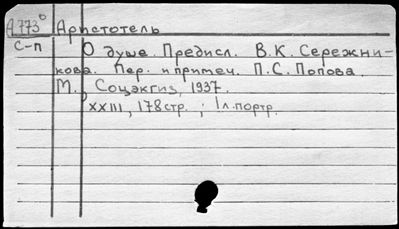 А773° Аристотель
С-п О душе. Предисл. В.К. Сережни-
кова. Пер. и примеч. П.С. Попова.
М., Соцэкгиз, 1937.
XXIII, 178 стр. ; 1 л. портр.